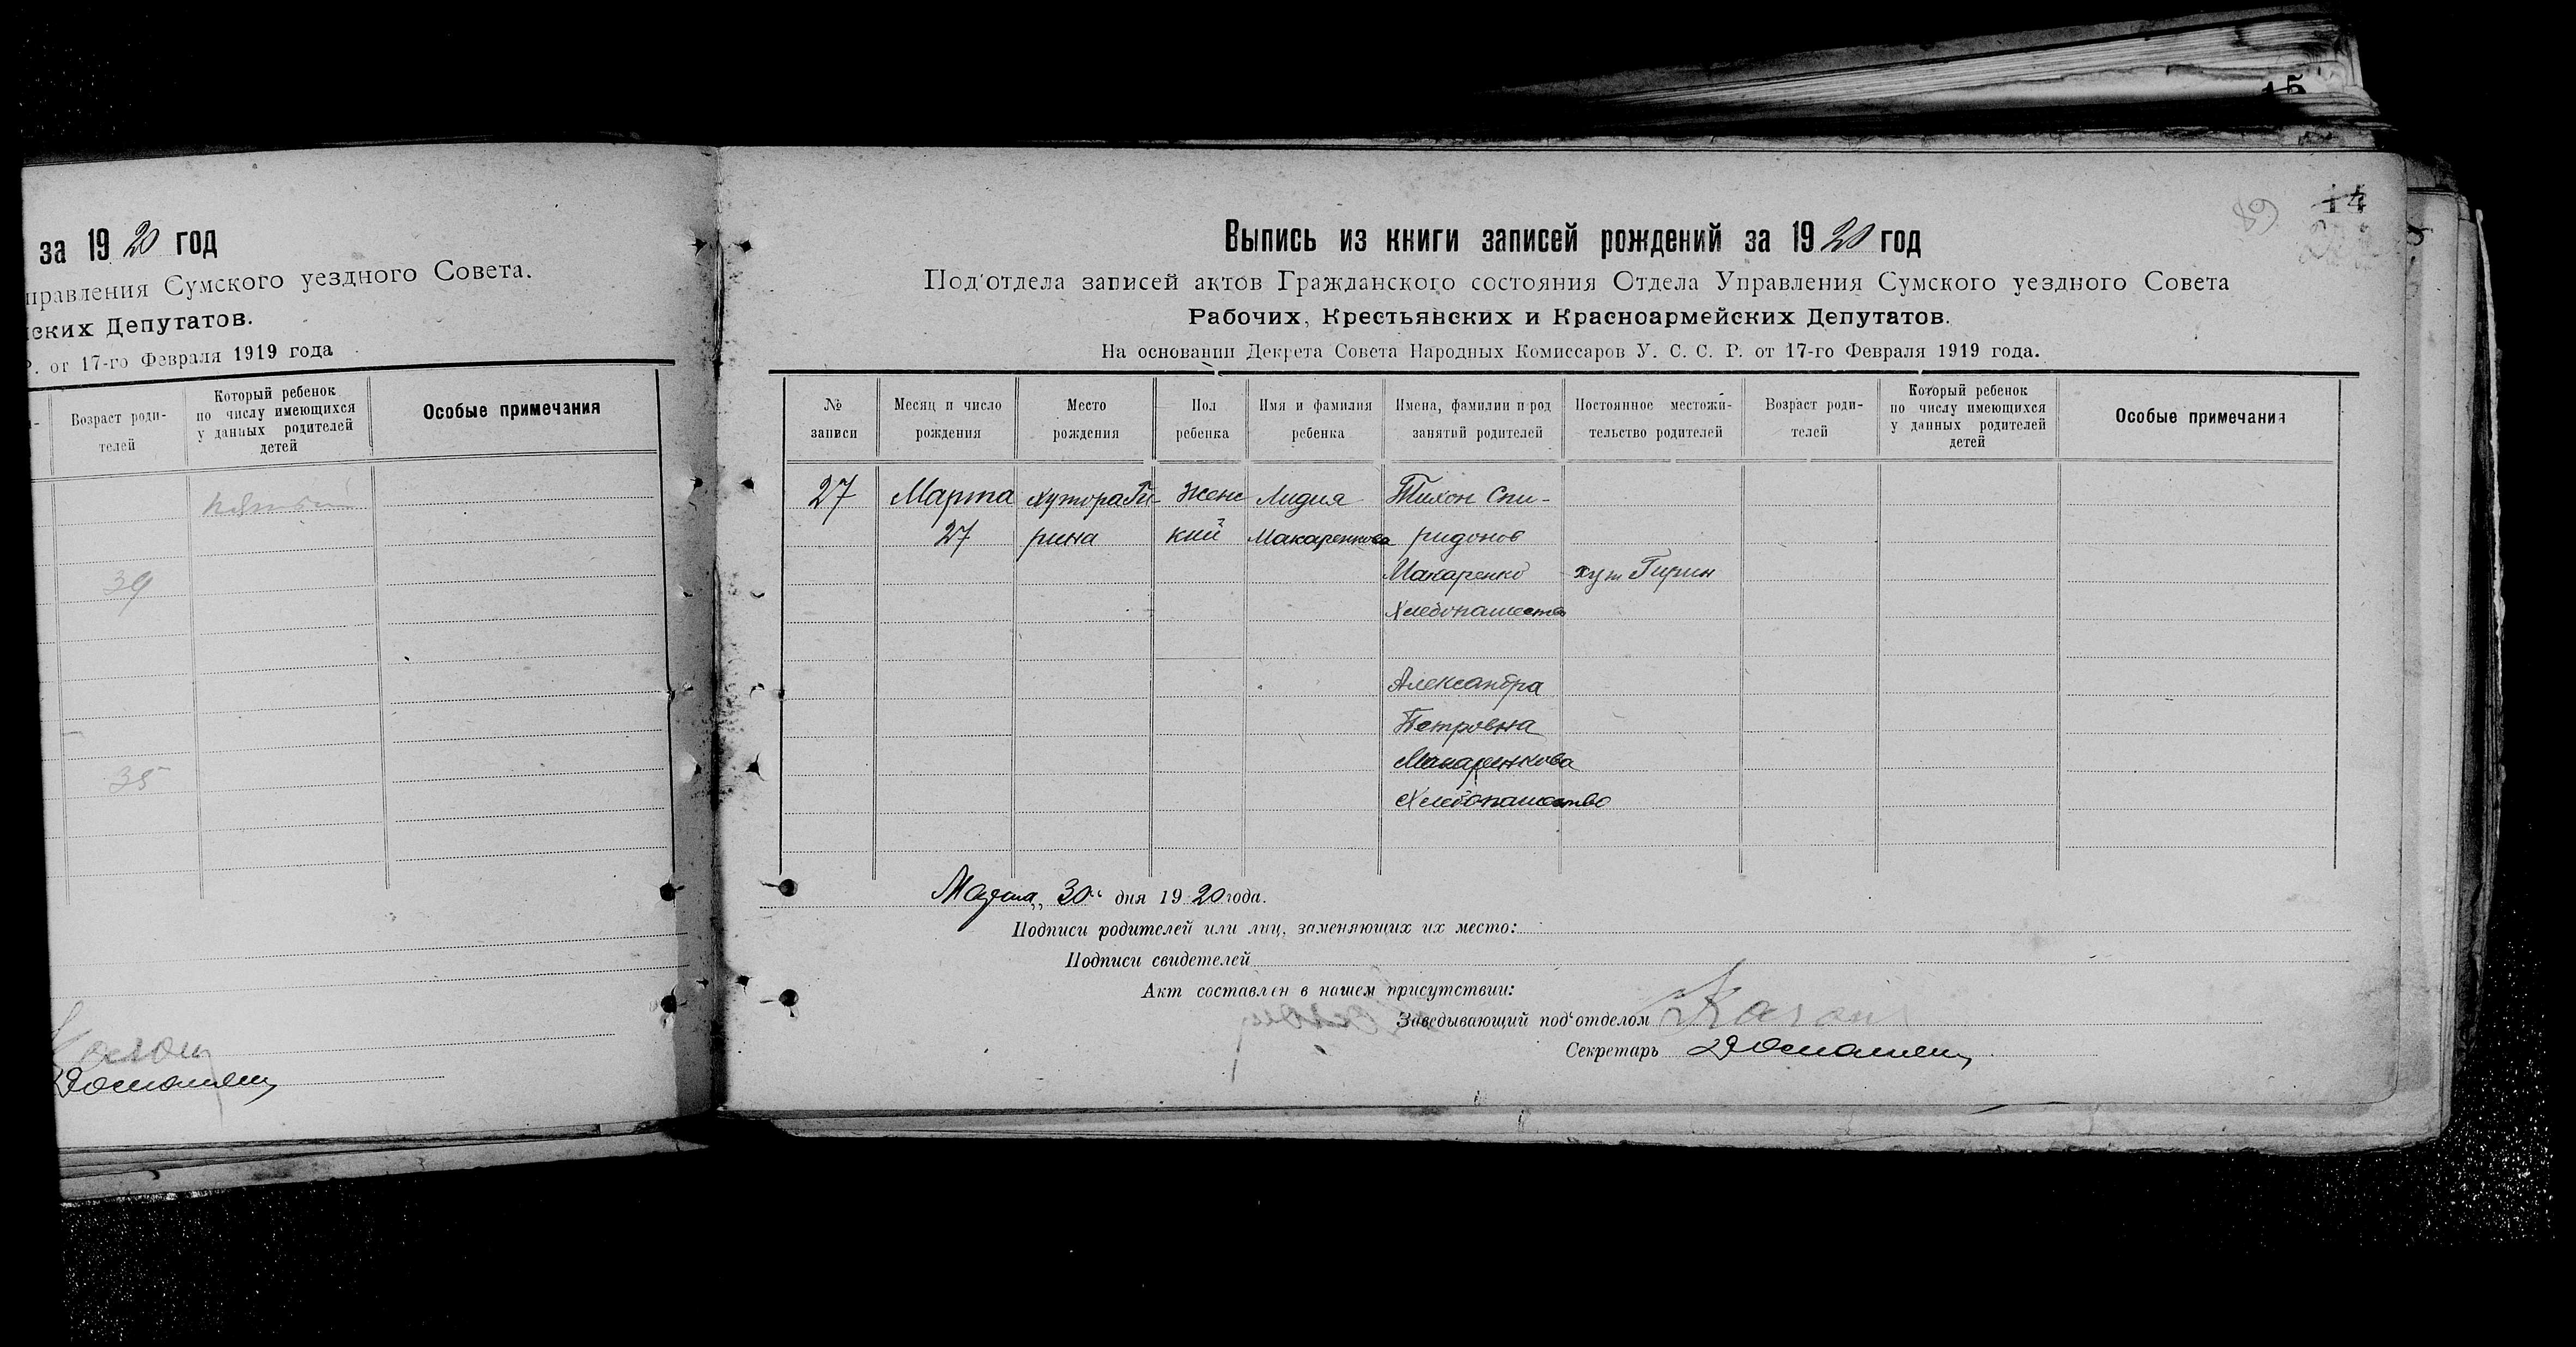 за 1920 год
правления Сумского уездного Совета.
ских Депутатов.
Р. от 17-го Февраля 1919 года
Возраст роди-
телей
Который ребенок
по числу имеющихся
у данных родителей
детей
Особые примечания
пятый
39
35
15
14
Выпись из книги записей рождений за 1920 год
Под'отдела записей актов Гражданского состояния Отдела Управления Сумского уездного Совета
Рабочих, Крестьянских и Красноармейских Депутатов.
На основании Декрета Совета Народных Комиссаров У. С. С. Р. от 17-го Февраля 1919 года.
№
записи
Месяц и число
рождения
Место
рождения
Пол
ребенка
Имя и фамилия
ребенка
Имена, фамилии и род
занятий родителей
Постоянное местожи-
тельство родителей
Возраст роди-
телей
Который ребенок
по числу имеющихся
у данных родителей
детей
Особые примечания
27 Марта Хутора Ги- Женс Лидия Тихон Спи-
27 рина кий Макаренкова ридонов
Макаренко хут Гирин
Хлебопашество
Александра
Петровна
Макаренкова
Хлебопашество
Марта, 30 дня 1920 года.
Подписи родителей или лиц, заменяющих их место:
Подписи свидетелей
Акт составлен в нашем присутствии:
Заведывающий под'отделом
Секретарь